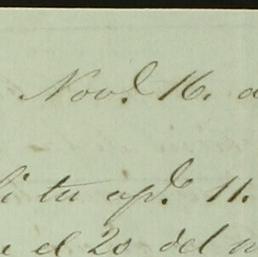 Nov.e 16. d
i tu apd. 11.
el 20 del